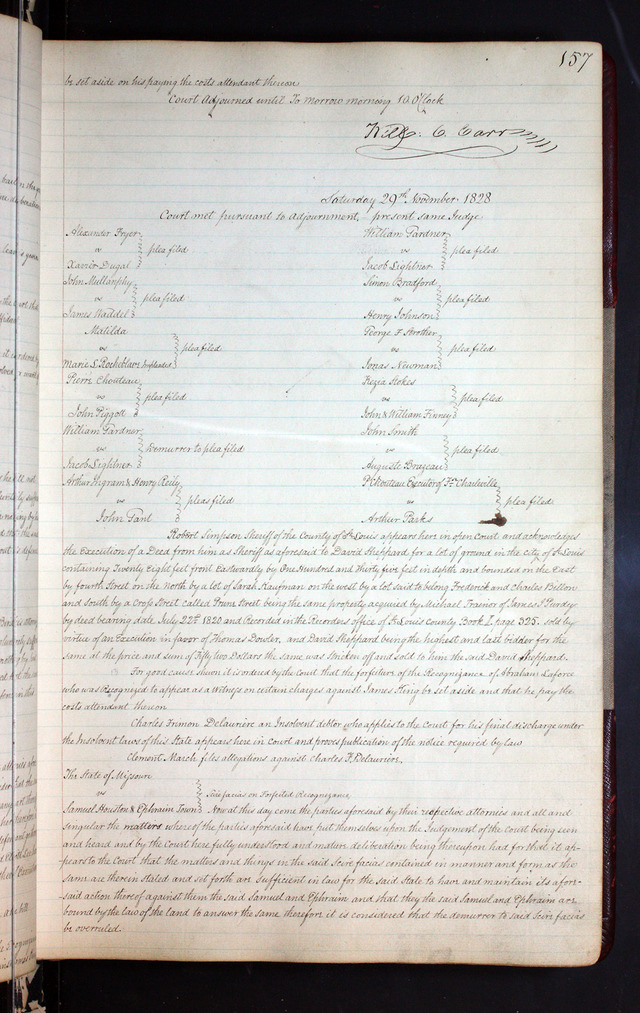 157
be set aside on his paying the costs attendant thereon
Court Adjourned until To Morrow morning 10 O'Clock
Will. C. Carr
Saturday 29th November 1828
Court met pursuant to Adjournment, present same Judge
Alexander Fryer
vs plea filed
Xavier Dugal
John Mullanphy
vs plea filed
James Waddel
Matilda
vs plea filed
Marie L Rocheblave Impleaded
Pierre Chouteau
vs plea filed
John Piggott
William Gardner
vs Demurrer to plea filed
Jacob Lightner
Arthur Ingram & Henry Reily
vs pleas filed
John Gant
William Gardner
vs plea filed
Jacob Lightner
Simon Bradford
vs plea filed
Henry Johnson
George F Strother
vs plea filed
Jonas Newman
Kezia Stokes
vs plea filed
John & William Finney
John Smith
vs plea filed
Auguste Brazeau
P Chouteau Executor of Fs Charleville
vs plea filed
Arthur Parks
Robert Simpson Sheriff of the County of St Louis appears here in open Court and acknowledges
the Execution of a Deed from him as Sheriff as aforesaid to David Sheppard for a lot of ground in the city of St Louis
containing Twenty Eight feet front Eastwardly by One Hundred and thirty five feet in depth and bounded on the East
by fourth Street on the North by a lot of Sarah Kaufman on the west by a lot said to belong Frederick and Charles Billon
and South by a Cross Street called Prune Street being the same property acquired by Michael Trainer of James J Purdey
by deed bearing date July 22d 1820 and Recorded in the Recorders office of St Louis County Book I. page 325. sold by
virtue of an Execution in favor of Thomas Douler, and David Sheppard being the highest and last bidder for the
same at the price and sum of Fifty two Dollars the same was stricken off and sold to him the said David Sheppard.
For good cause shown it is ordered by the Court that the forfeiture of the Recognizance of Abraham Laforce
who was Recognized to appear as a Witness on certain charges against James King be set aside and that he pay the
costs attendant thereon
Charles Fremon Delauriere an Insolvent debtor who applies to the Court for his final discharge under
the Insolvent laws of this State appears here in Court and proves publication of the notice required by law
Clement March files allegations against Charles F. Delaurien.
The State of Missouri
vs Scire facias on Forfeited Recognizance
Samuel Houston & Ephraim Town Now at this day come the parties aforesaid by their respective attornies and all and
singular the matters whereof the parties aforesaid have put themselves upon the Judgement of the court being seen
and heard and by the Court here fully understood and mature deliberation being thereupon had for that it ap-
pears to the Court that the matters and things in the said Scire facias contained in manner and form as the
same are therein stated and set forth are Sufficient in law for the said State to have and maintain its afore-
said action thereof against them the said Samuel and Ephraim and that they the said Samuel and Ephraim are
bound by the law of the land to answer the same therefore it is considered that the demurrer to said Scire facias
be overruled.